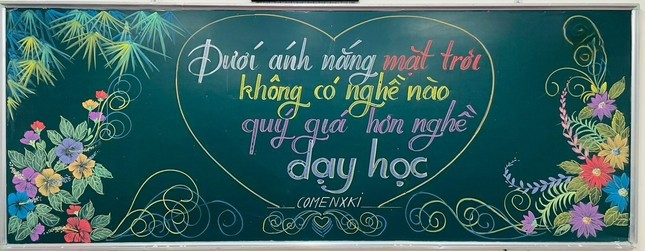 Dưới ánh nắng mặt trời
không có nghề nào
quý giá hơn nghề
dạy học
COMENXKI